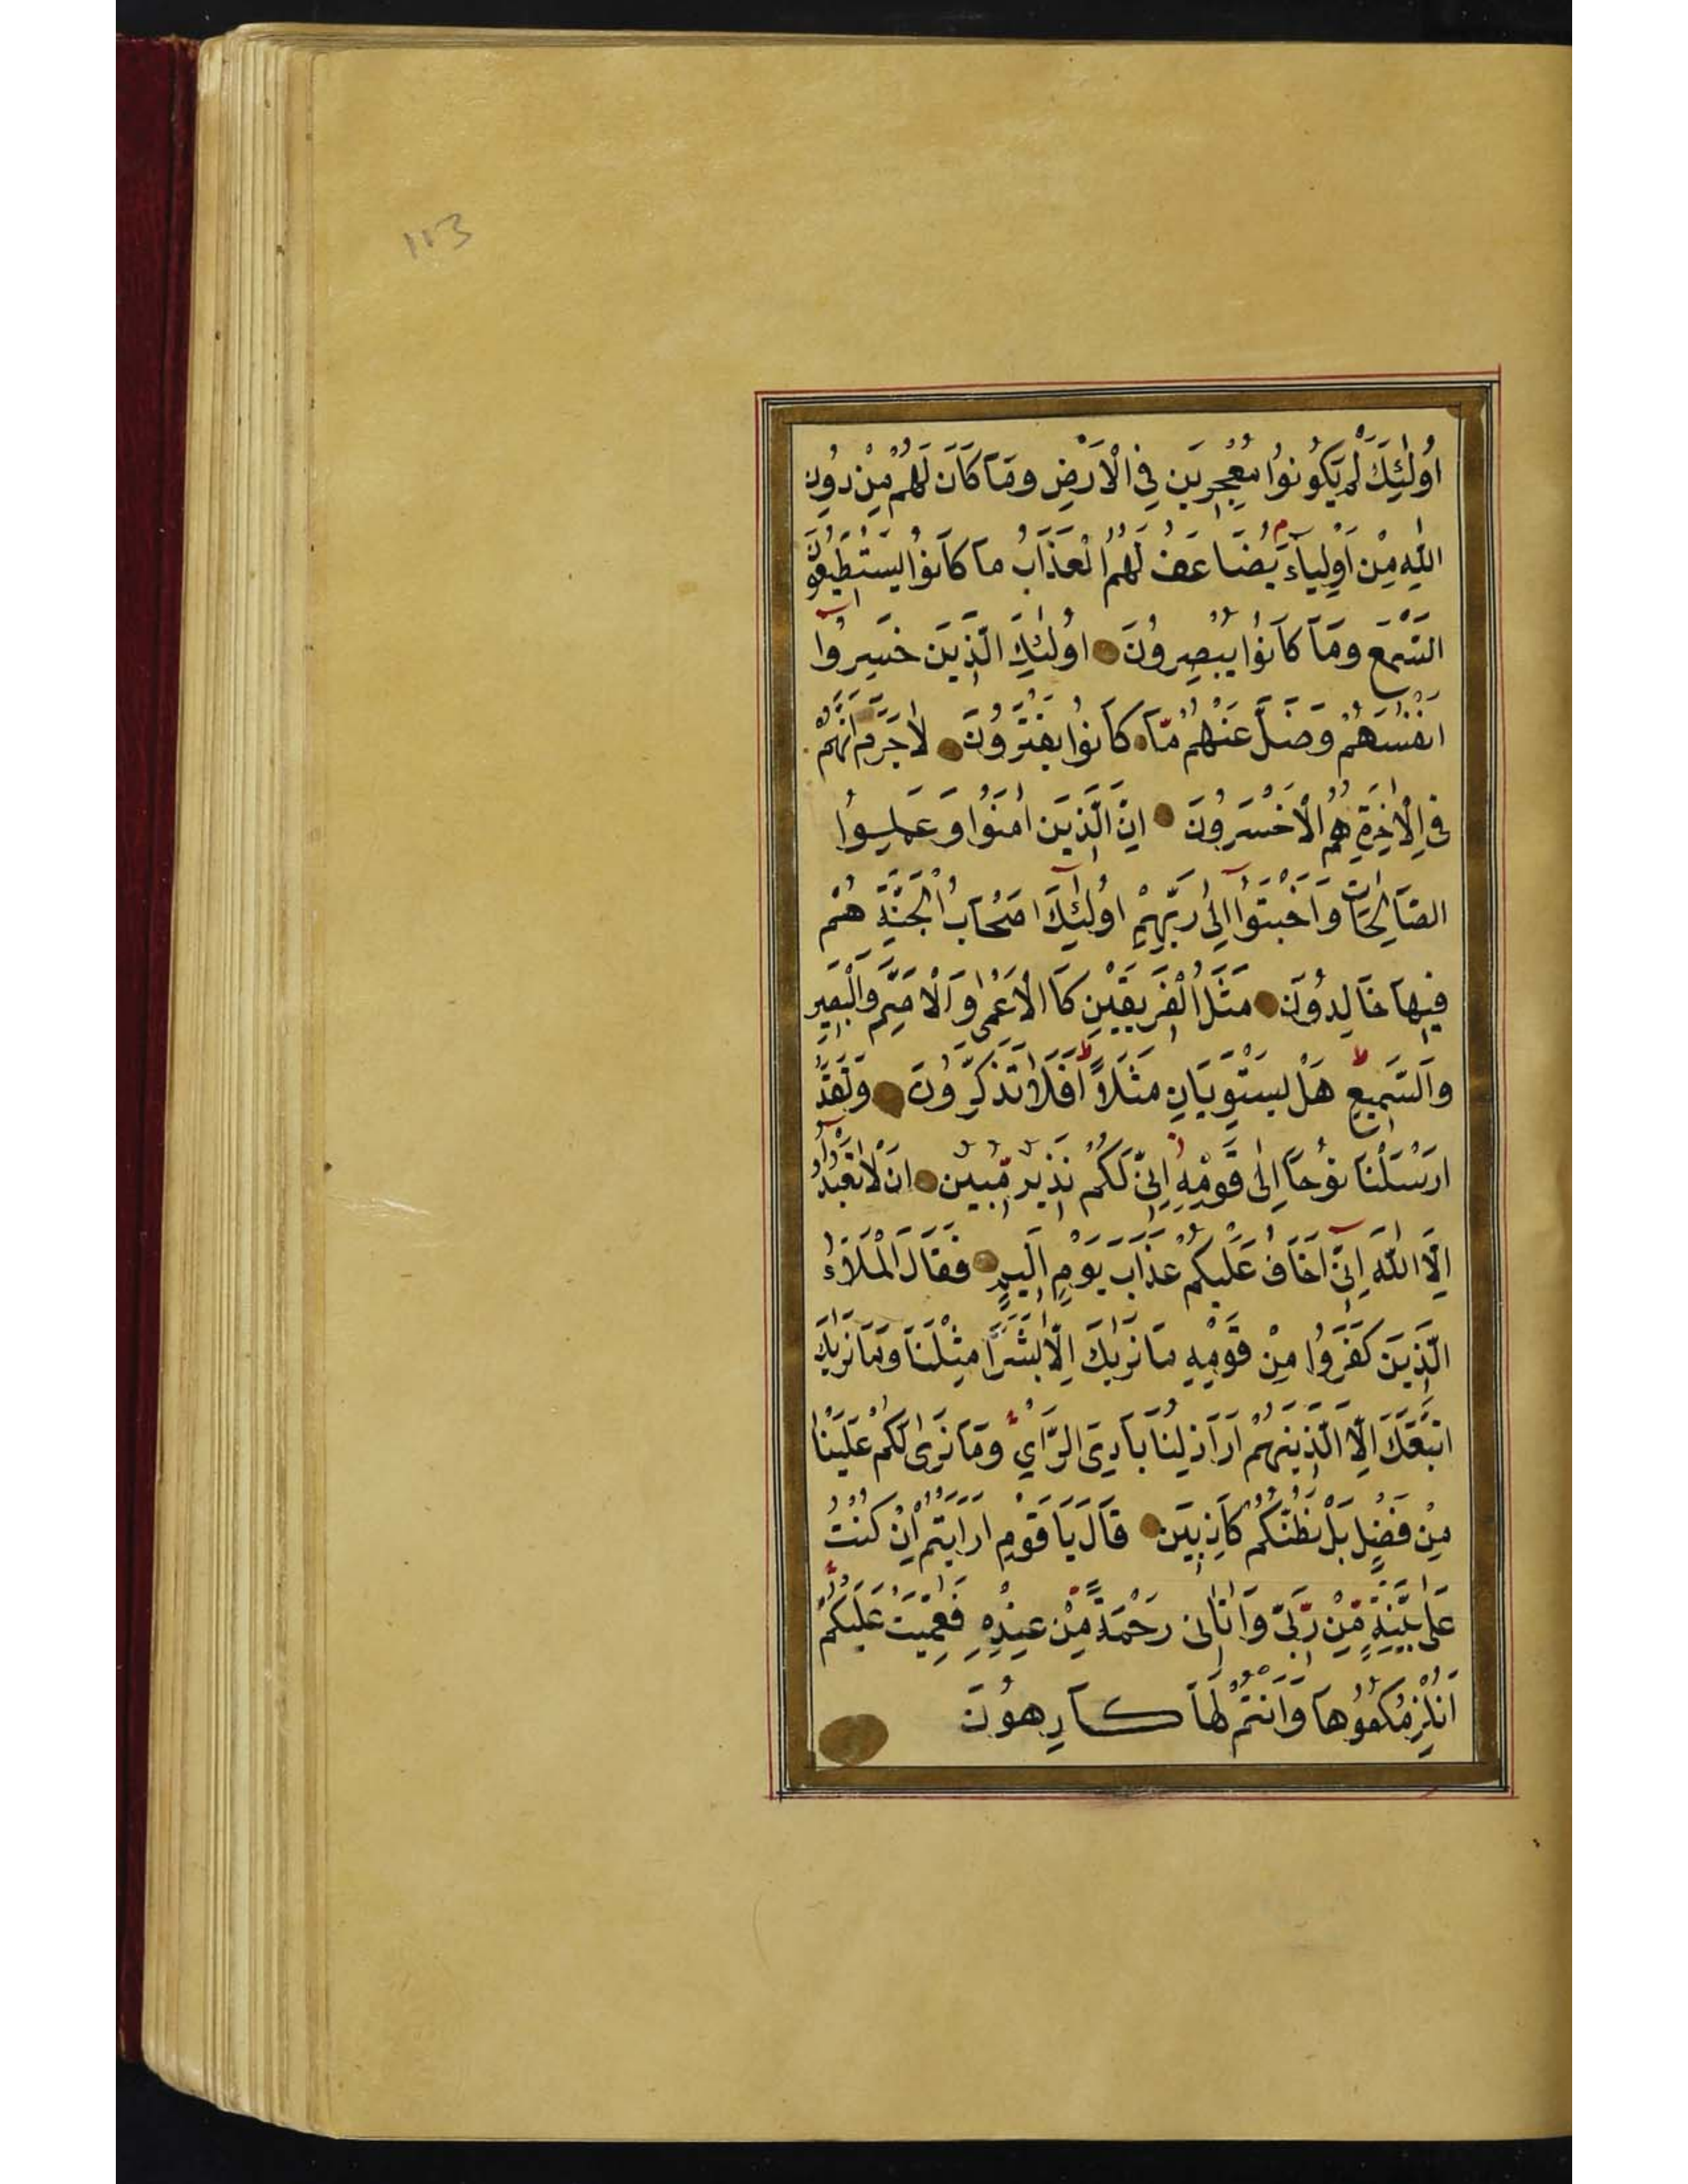 113
اُولٰئِكَ لَمْ يَكُونُوا مُعْجِزِينَ فِي الْاَرْضِ وَمَا كَانَ لَهُمْ مِنْ دُونِ
اللّٰهِ مِنْ اَوْلِيَاءَ م يُضَاعَفُ لَهُمُ الْعَذَابُ مَا كَانُوا يَسْتَطِيعُونَ
السَّمْعَ وَمَا كَانُوا يُبْصِرُونَ اُولٰئِكَ الَّذِينَ خَسِرُوا
اَنْفُسَهُمْ وَضَلَّ عَنْهُمْ مَّا كَانُوا يَفْتَرُونَ لَا جَرَمَ اَنَّهُمْ
فِي الْاٰخِرَةِ هُمُ الْاَخْسَرُونَ اِنَّ الَّذِينَ اٰمَنُوا وَعَمِلُوا
الصَّالِحَاتِ وَاَخْبَتُوا اِلٰى رَبِّهِمْ اُولٰئِكَ اَصْحَابُ الْجَنَّةِ هُمْ
فِيهَا خَالِدُونَ مَثَلُ الْفَرِيقَيْنِ كَا الْاَعْمٰى وَالْاَصَمِّ وَالْبَصِيرِ
وَالسَّمِيعِ ط هَلْ يَسْتَوِيَانِ مَثَلًا ط اَفَلَا تَذَكَّرُونَ وَلَقَدْ
اَرْسَلْنَا نُوحًا اِلٰى قَوْمِهِ اِنِّي لَكُمْ نَذِيرٌ مُّبِينٌ اَنْ لَا تَعْبُدُوا
اِلَّا اللّٰهَ اِنِّي اَخَافُ عَلَيْكُمْ عَذَابَ يَوْمٍ اَلِيمٍ فَقَالَ الْمَلَاُء
الَّذِينَ كَفَرُوا مِنْ قَوْمِهِ مَا نَرٰيكَ اِلَّا بَشَرًا مِثْلَنَا وَمَا نَرٰيكَ
اتَّبَعَكَ اِلَّا الَّذِينَ هُمْ اَرَاذِلُنَا بَادِيَ الرَّاْيِ وَمَا نَرٰى لَكُمْ عَلَيْنَا
مِنْ فَضْلٍ بَلْ نَظُنُّكُمْ كَاذِبِينَ قَالَ يَا قَوْمِ اَرَاَيْتُمْ اِنْ كُنْتُ
عَلٰى بَيِّنَةٍ مِّنْ رَبِّي وَاٰتٰانِى رَحْمَةً مِّنْ عِنْدِهِ فَعُمِّيَتْ عَلَيْكُمْ
اَنُلْزِمُكُمُوهَا وَاَنْتُمْ لَهَا كَارِهُونَ